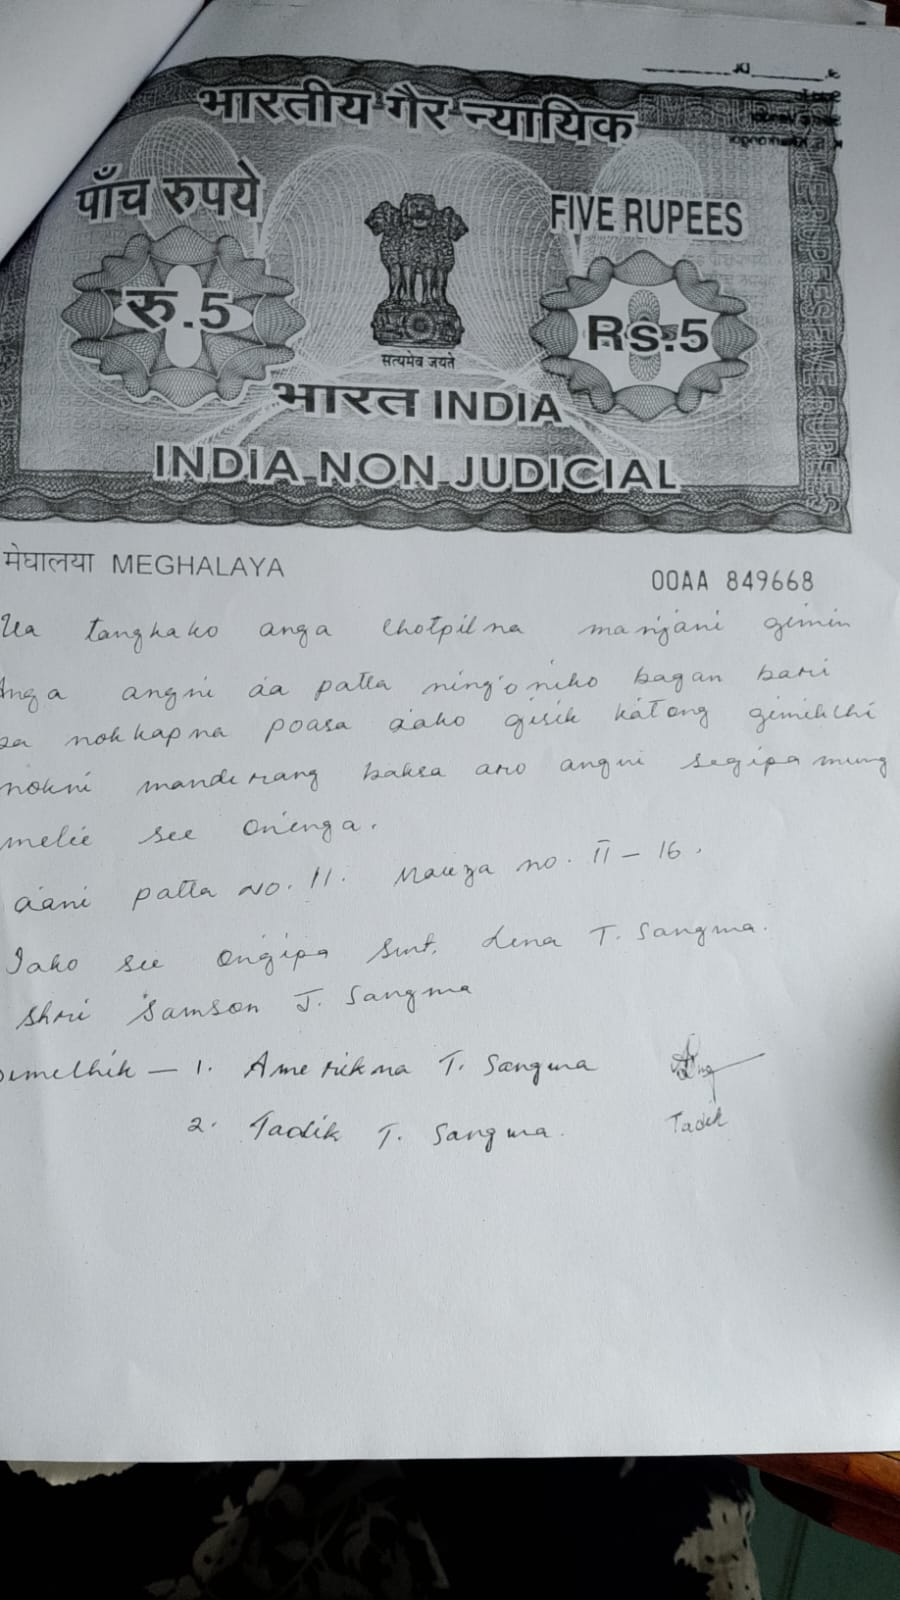 भारतीय गैर न्यायिक
पाँच रुपये
FIVE RUPEES
रु.5
Rs.5
सत्यमेव जयते
भारत INDIA
INDIA NON JUDICIAL
मेघालया MEGHALAYA
00AA 849668
Ua tangkako anga chotpilna manjani gimin
Anga angni aa patta ning'oniko bagan bari
nokkapna poasa aako gisik katong gimikchi
nokni manderang baksa aro angni segipa mung
melie see on'enga.
aani patta No. 11. Mauza no. II - 16.
Iako see on'gipa Smt. Lena T. Sangma.
Shri Samson J. Sangma
1. Amerikna T. Sangma
2. Tadik T. Sangma.
Tadik